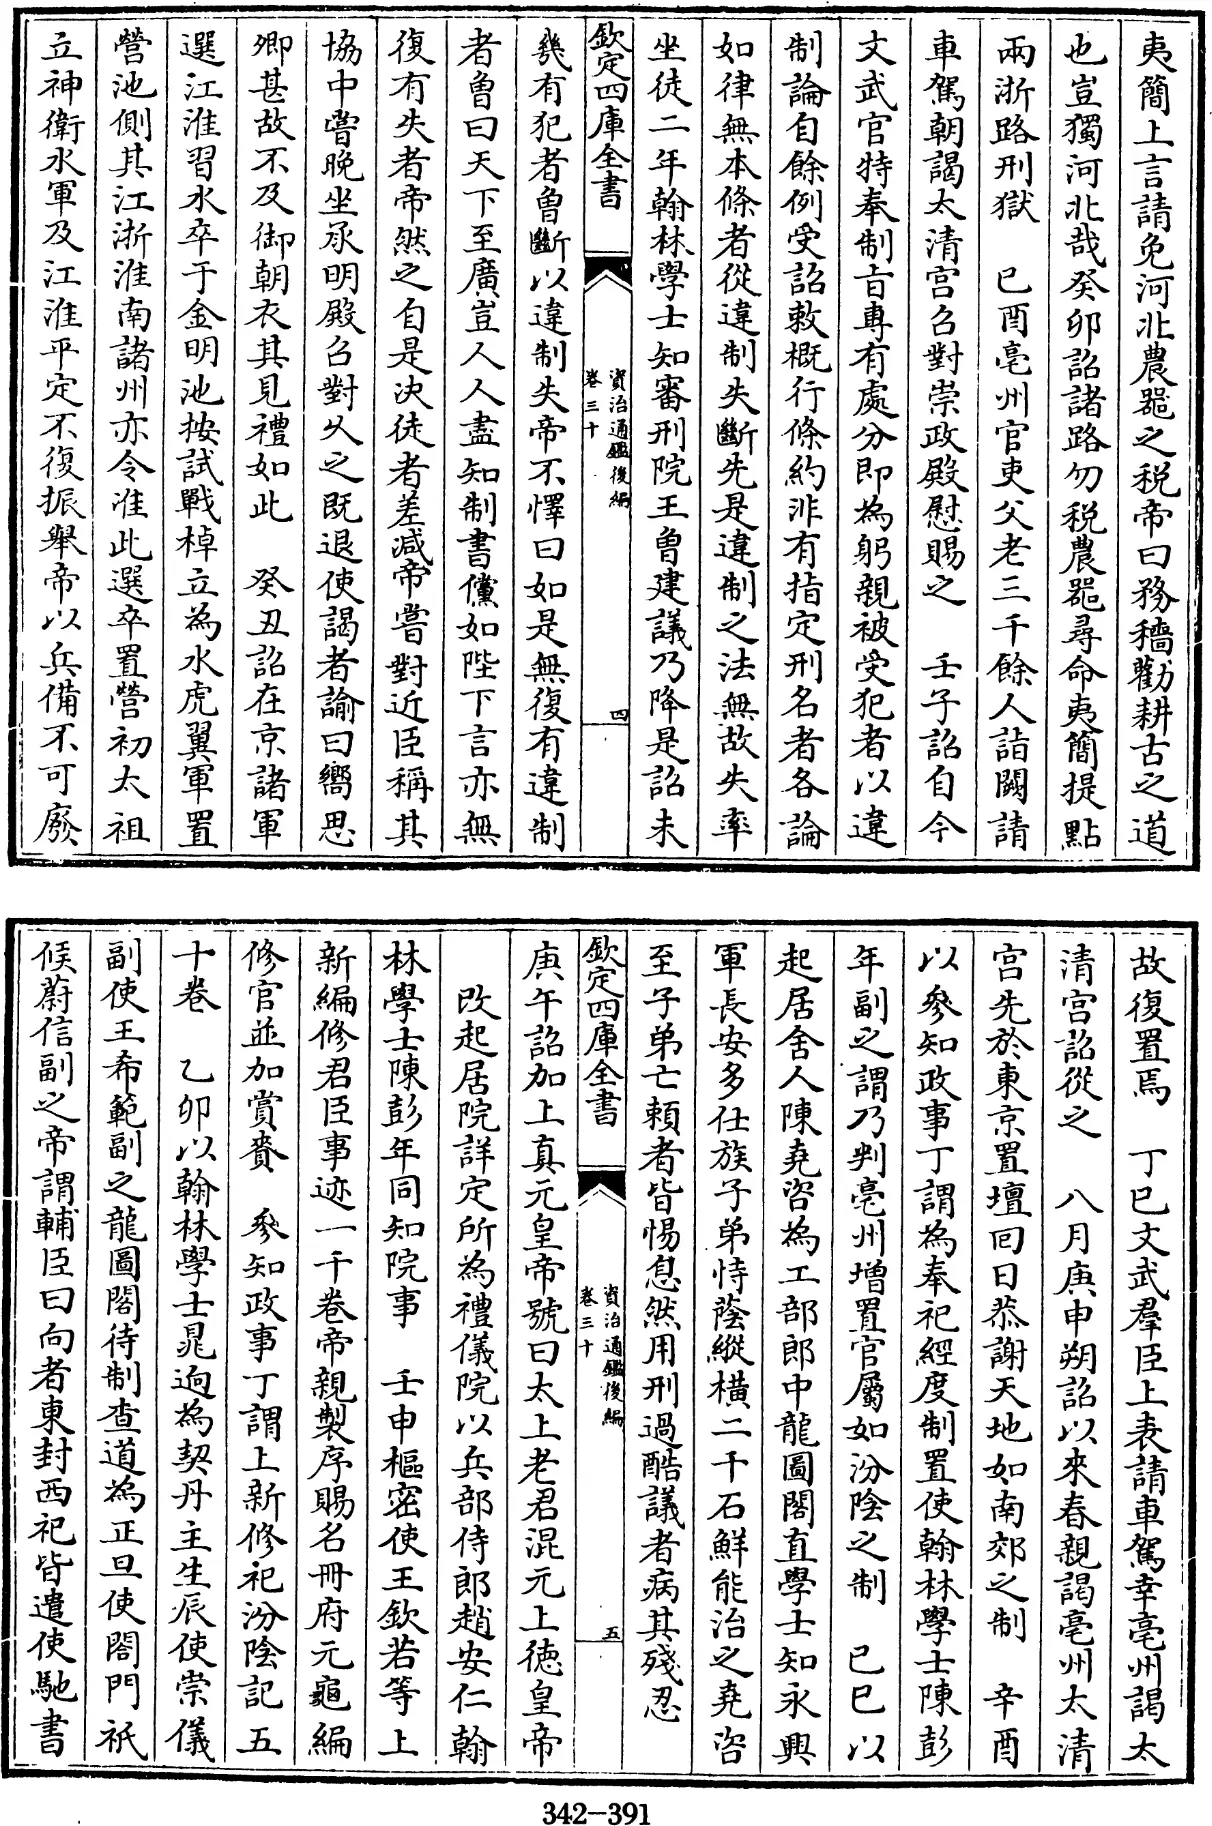 夷簡上言請免河北農器之税帝曰務穡勸耕古之道
也豈獨河北哉癸卯詔諸路勿税農器尋命夷簡提點
兩浙路刑獄　己酉亳州官吏父老三千餘人詣闕請
車駕朝謁太清宫召對崇政殿慰賜之　壬子詔自今
文武官特奉制旨專有處分即為躬親被受犯者以違
制論自餘例受詔敕概行條約非有指定刑名者各論
如律無本條者從違制失斷先是違制之法無故失率
坐徒二年翰林學士知審刑院王魯建議乃降是詔未
欽定四庫全書
資治通鑑後編
卷三十
四
幾有犯者魯斷以違制失帝不懌曰如是無復有違制
者魯曰天下至廣豈人人盡知制書儻如陛下言亦無
復有失者帝然之自是决徒者差减帝嘗對近臣稱其
協中嘗晚坐承明殿召對乆之既退使謁者諭曰嚮思
卿甚故不及御朝衣其見禮如此　癸丑詔在京諸軍
選江淮習水卒于金明池按試戰棹立為水虎翼軍置
營池側其江浙淮南諸州亦令准此選卒置營初太祖
立神衛水軍及江淮平定不復振舉帝以兵備不可廢
故復置焉　丁巳文武羣臣上表請車駕幸亳州謁太
清宫詔從之　八月庚申朔詔以來春親謁亳州太清
宫先於東京置壇回日恭謝天地如南郊之制　辛酉
以參知政事丁謂為奉祀經度制置使翰林學士陳彭
年副之謂乃判亳州增置官屬如汾陰之制　己巳以
起居舍人陳堯咨為工部郎中龍圖閣直學士知永興
軍長安多仕族子弟恃蔭縱橫二千石鮮能治之堯咨
至子弟亡賴者皆惕息然用刑過酷議者病其殘忍
欽定四庫全書
資治通鑑後編
卷三十
五
庚午詔加上真元皇帝號曰太上老君混元上徳皇帝
　改起居院詳定所為禮儀院以兵部侍郎趙安仁翰
林學士陳彭年同知院事　壬申樞密使王欽若等上
新編修君臣事迹一千卷帝親製序賜名冊府元龜編
修官並加賞賚　參知政事丁謂上新修祀汾陰記五
十卷　乙卯以翰林學士晁迥為契丹主生辰使崇儀
副使王希範副之龍圖閣待制查道為正旦使閤門祇
候蔚信副之帝謂輔臣曰向者東封西祀皆遣使馳書
342-391